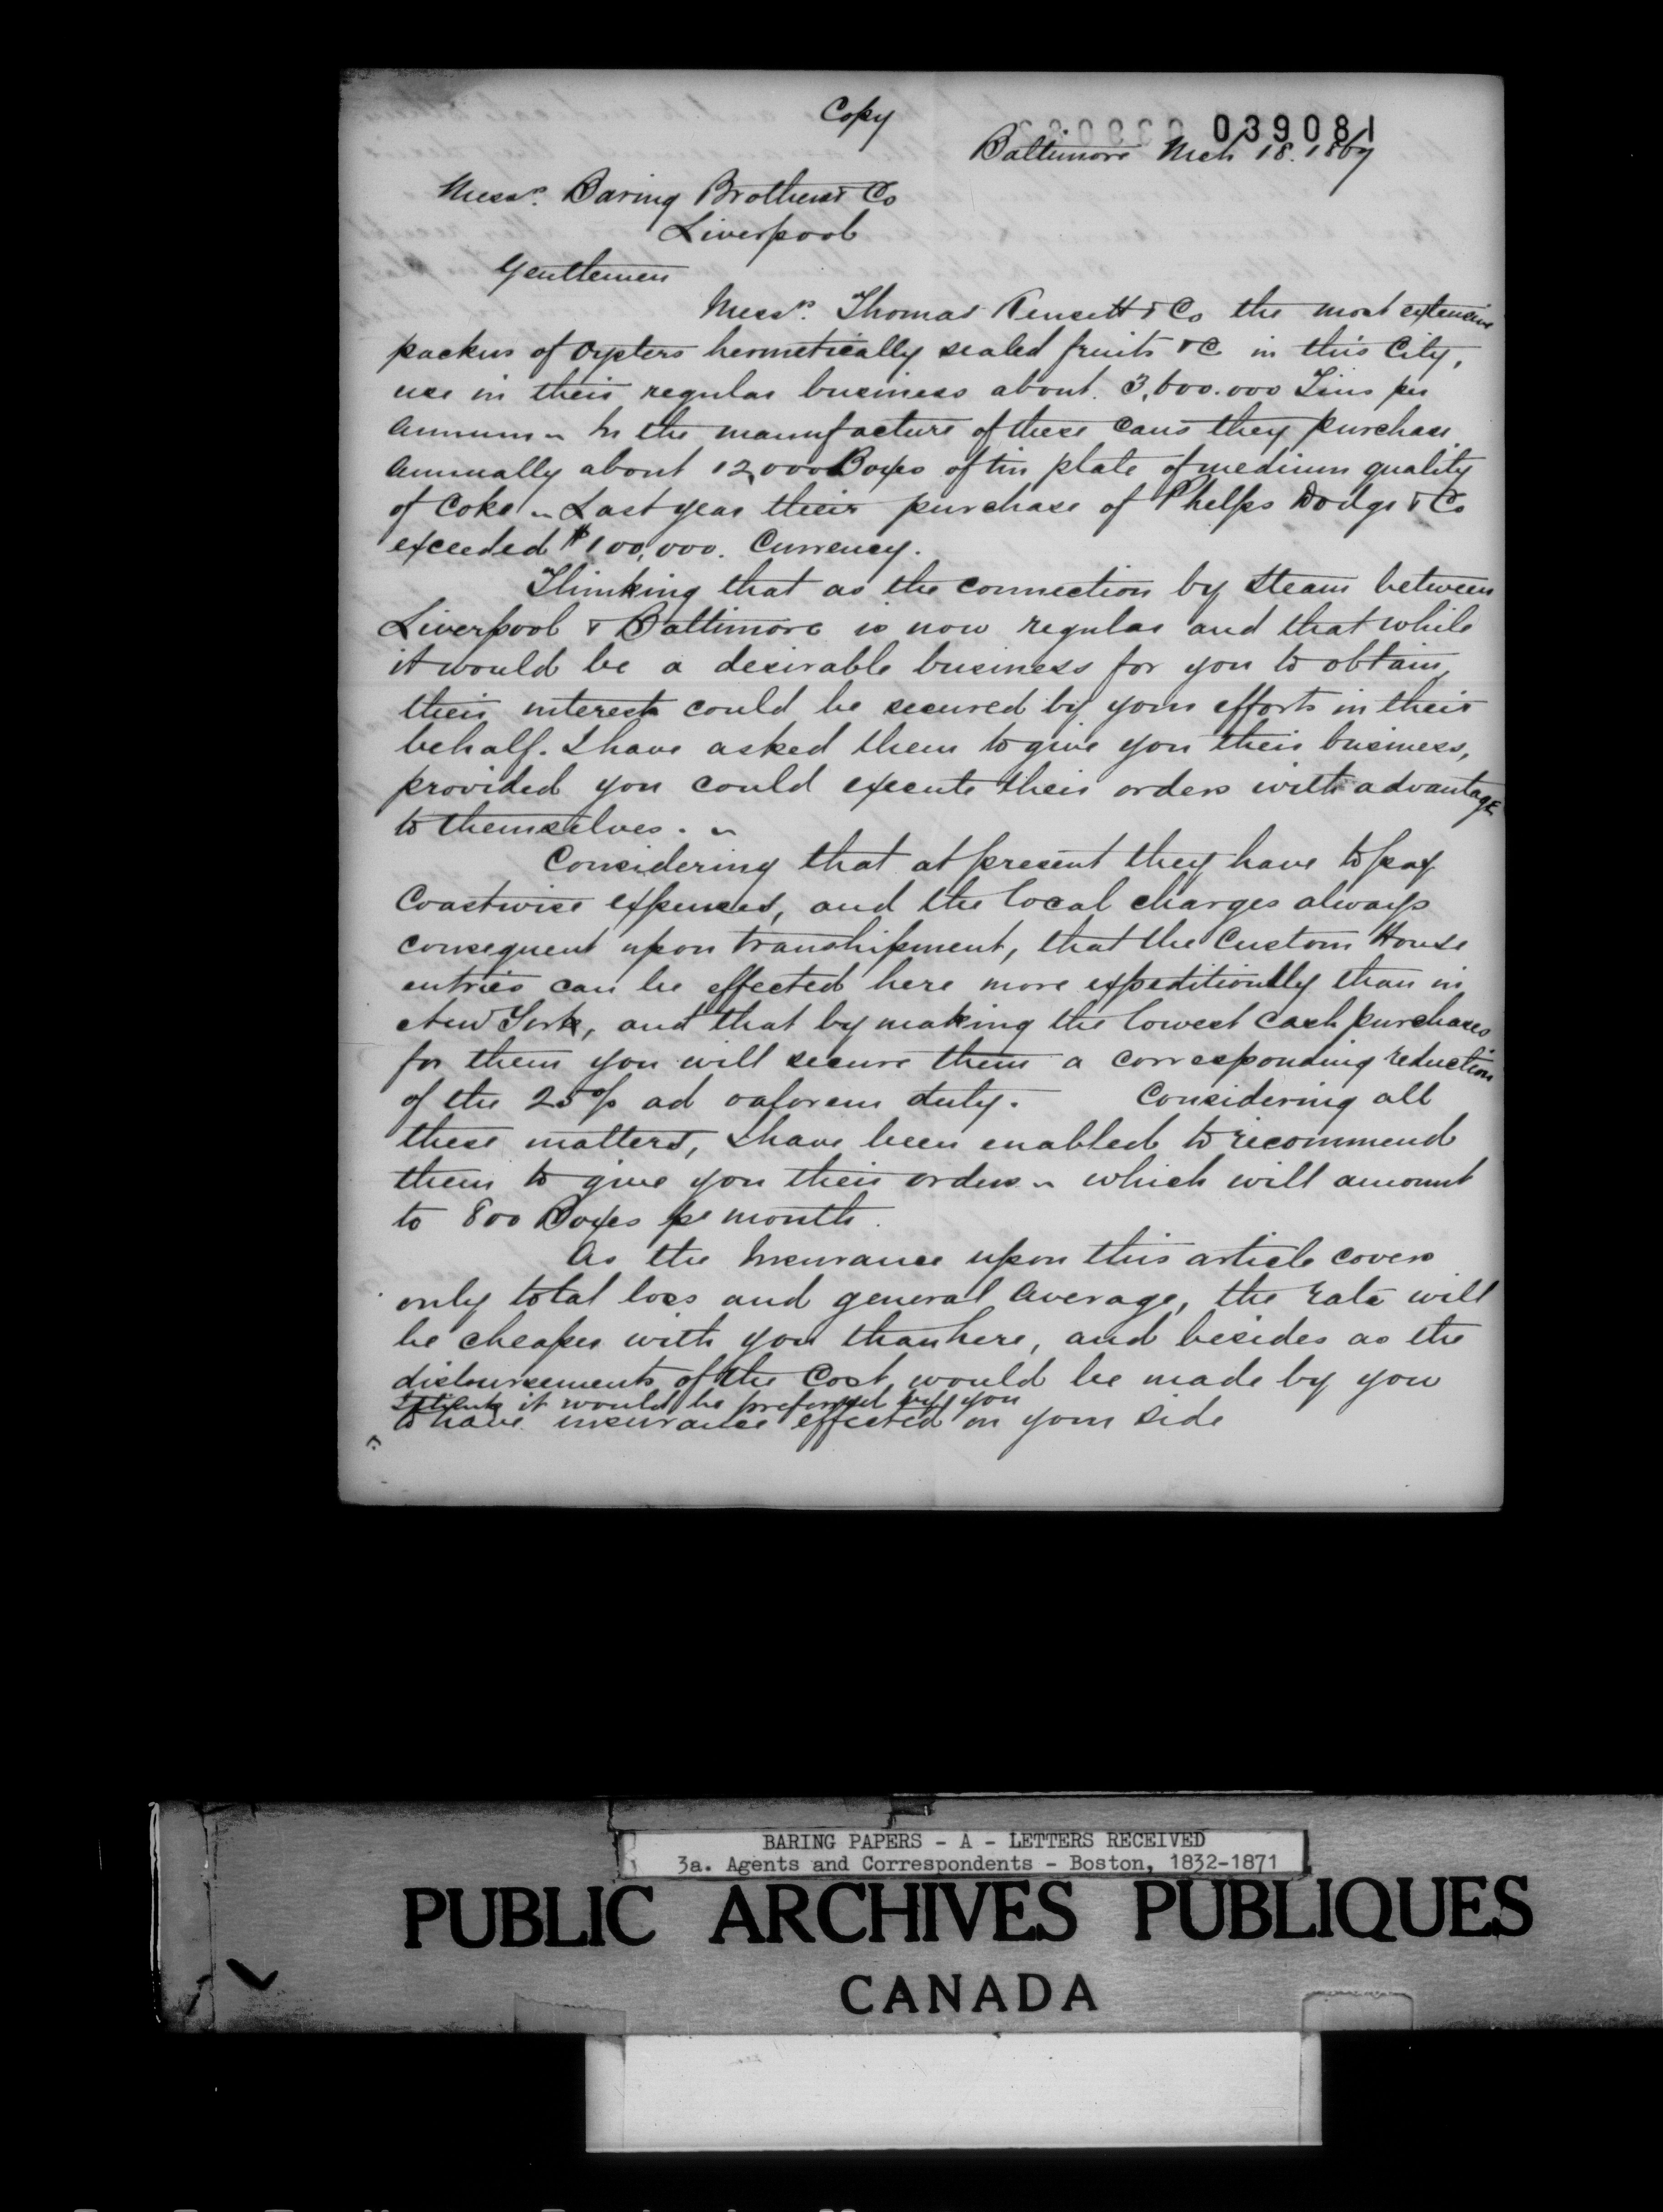 Copy
039081
Baltimore Mch 18. 1869
Messrs. Baring Brothers & Co
Liverpool
Gentlemen
Messrs. Thomas Kensett & Co the most extensive
packers of Oysters hermetically sealed fruits &C in this City,
use in their regular business about 3,600.000 Tins per
Annum ~ In the manufacture of these Cans they purchase
Annually about 12,000 Boxes of tin plate of medium quality
of Coke ~ Last year their purchase of Phelps Dodge & Co
exceeded $100,000. Currency.
Thinking that as the connection by Steam between
Liverpool & Baltimore is now regular and that while
it would be a desirable business for you to obtain,
their interest could be secured by your efforts in their
behalf. I have asked them to give you their business,
provided you could execute their orders with advantage
to themselves. ~
Considering that at present they have to pay
Coastwise expenses, and the local charges always
consequent upon transhipment, that the Custom House
entries can be effected here more expeditiously than in
New York, and that by making the lowest Cash purchases
for them you will secure them a corresponding reduction
of the 25% ad valorem duty. Considering all
these matters, I have been enabled to recommend
them to give you their orders ~ which will amount
to 800 Boxes pr month.
As the Insurance upon this article covers
only total loss and general Average, the rate will
be cheaper with you than here, and besides as the
disbursements of the Cost would be made by you
I think it would be preferred by you
to have insurance effected on your side
BARING PAPERS - A - LETTERS RECEIVED
3a. Agents and Correspondents - Boston, 1832-1871
PUBLIC ARCHIVES PUBLIQUES
CANADA